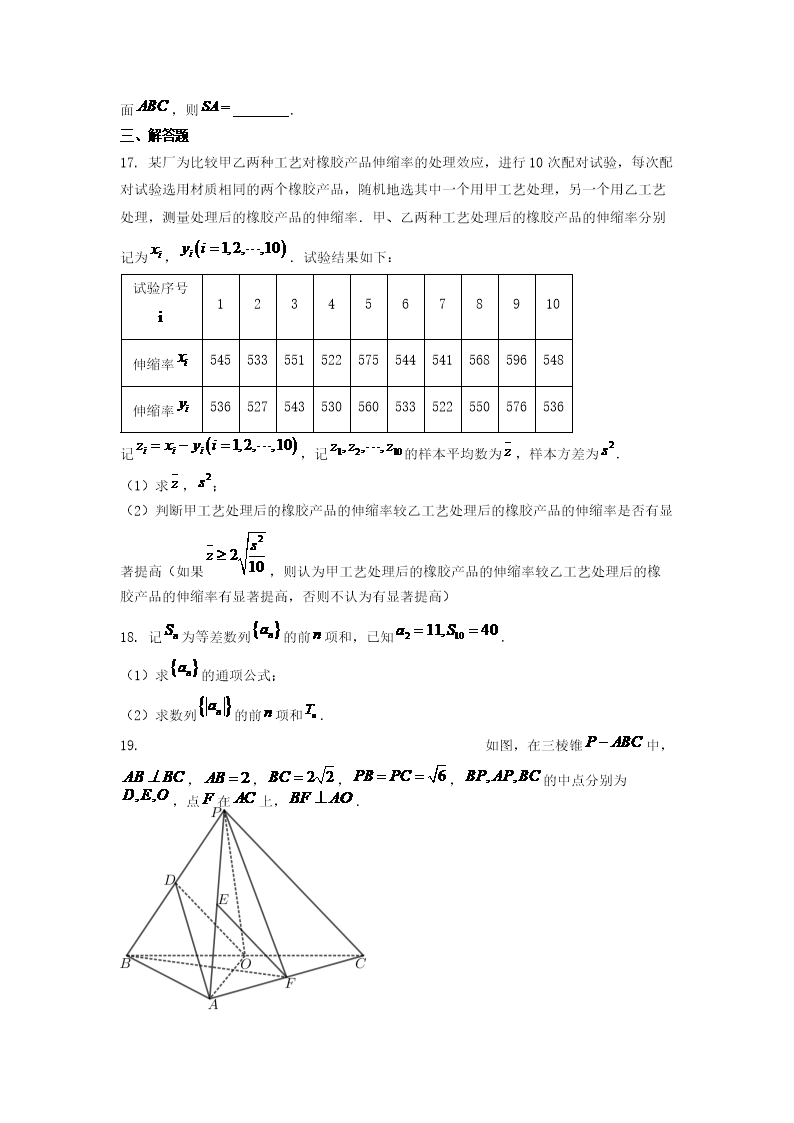 面ABC，则SA=________．
三、解答题
17. 某厂为比较甲乙两种工艺对橡胶产品伸缩率的处理效应，进行10次配对试验，每次配
对试验选用材质相同的两个橡胶产品，随机地选其中一个用甲工艺处理，另一个用乙工艺
处理，测量处理后的橡胶产品的伸缩率．甲、乙两种工艺处理后的橡胶产品的伸缩率分别
记为xᵢ，yᵢ(i=1,2,⋯,10)．试验结果如下：
试验序号i 1 2 3 4 5 6 7 8 9 10
伸缩率xᵢ 545 533 551 522 575 544 541 568 596 548
伸缩率yᵢ 536 527 543 530 560 533 522 550 576 536
记zᵢ=xᵢ−yᵢ(i=1,2,⋯,10)，记z₁,z₂,⋯,z₁₀的样本平均数为z̄，样本方差为s²．
（1）求z̄，s²；
（2）判断甲工艺处理后的橡胶产品的伸缩率较乙工艺处理后的橡胶产品的伸缩率是否有显
著提高（如果z̄≥2√(s²/10)，则认为甲工艺处理后的橡胶产品的伸缩率较乙工艺处理后的橡
胶产品的伸缩率有显著提高，否则不认为有显著提高）
18. 记Sₙ为等差数列{aₙ}的前n项和，已知a₂=11,S₁₀=40．
（1）求{aₙ}的通项公式；
（2）求数列{|aₙ|}的前n项和Tₙ．
19. 如图，在三棱锥P−ABC中，
AB⊥BC，AB=2，BC=2√2，PB=PC=√6，BP,AP,BC的中点分别为
D,E,O，点F在AC上，BF⊥AO．
P
D
E
B
O
C
F
A